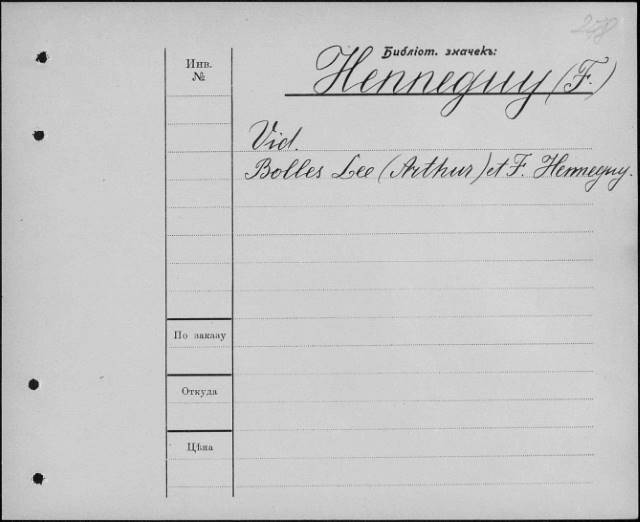 278
Библіот. значекъ:
Henneguy (F.)
Инв.
№
Vid.
Bolles Lee (Arthur) et F. Henneguy.
По заказу
Откуда
Цѣна